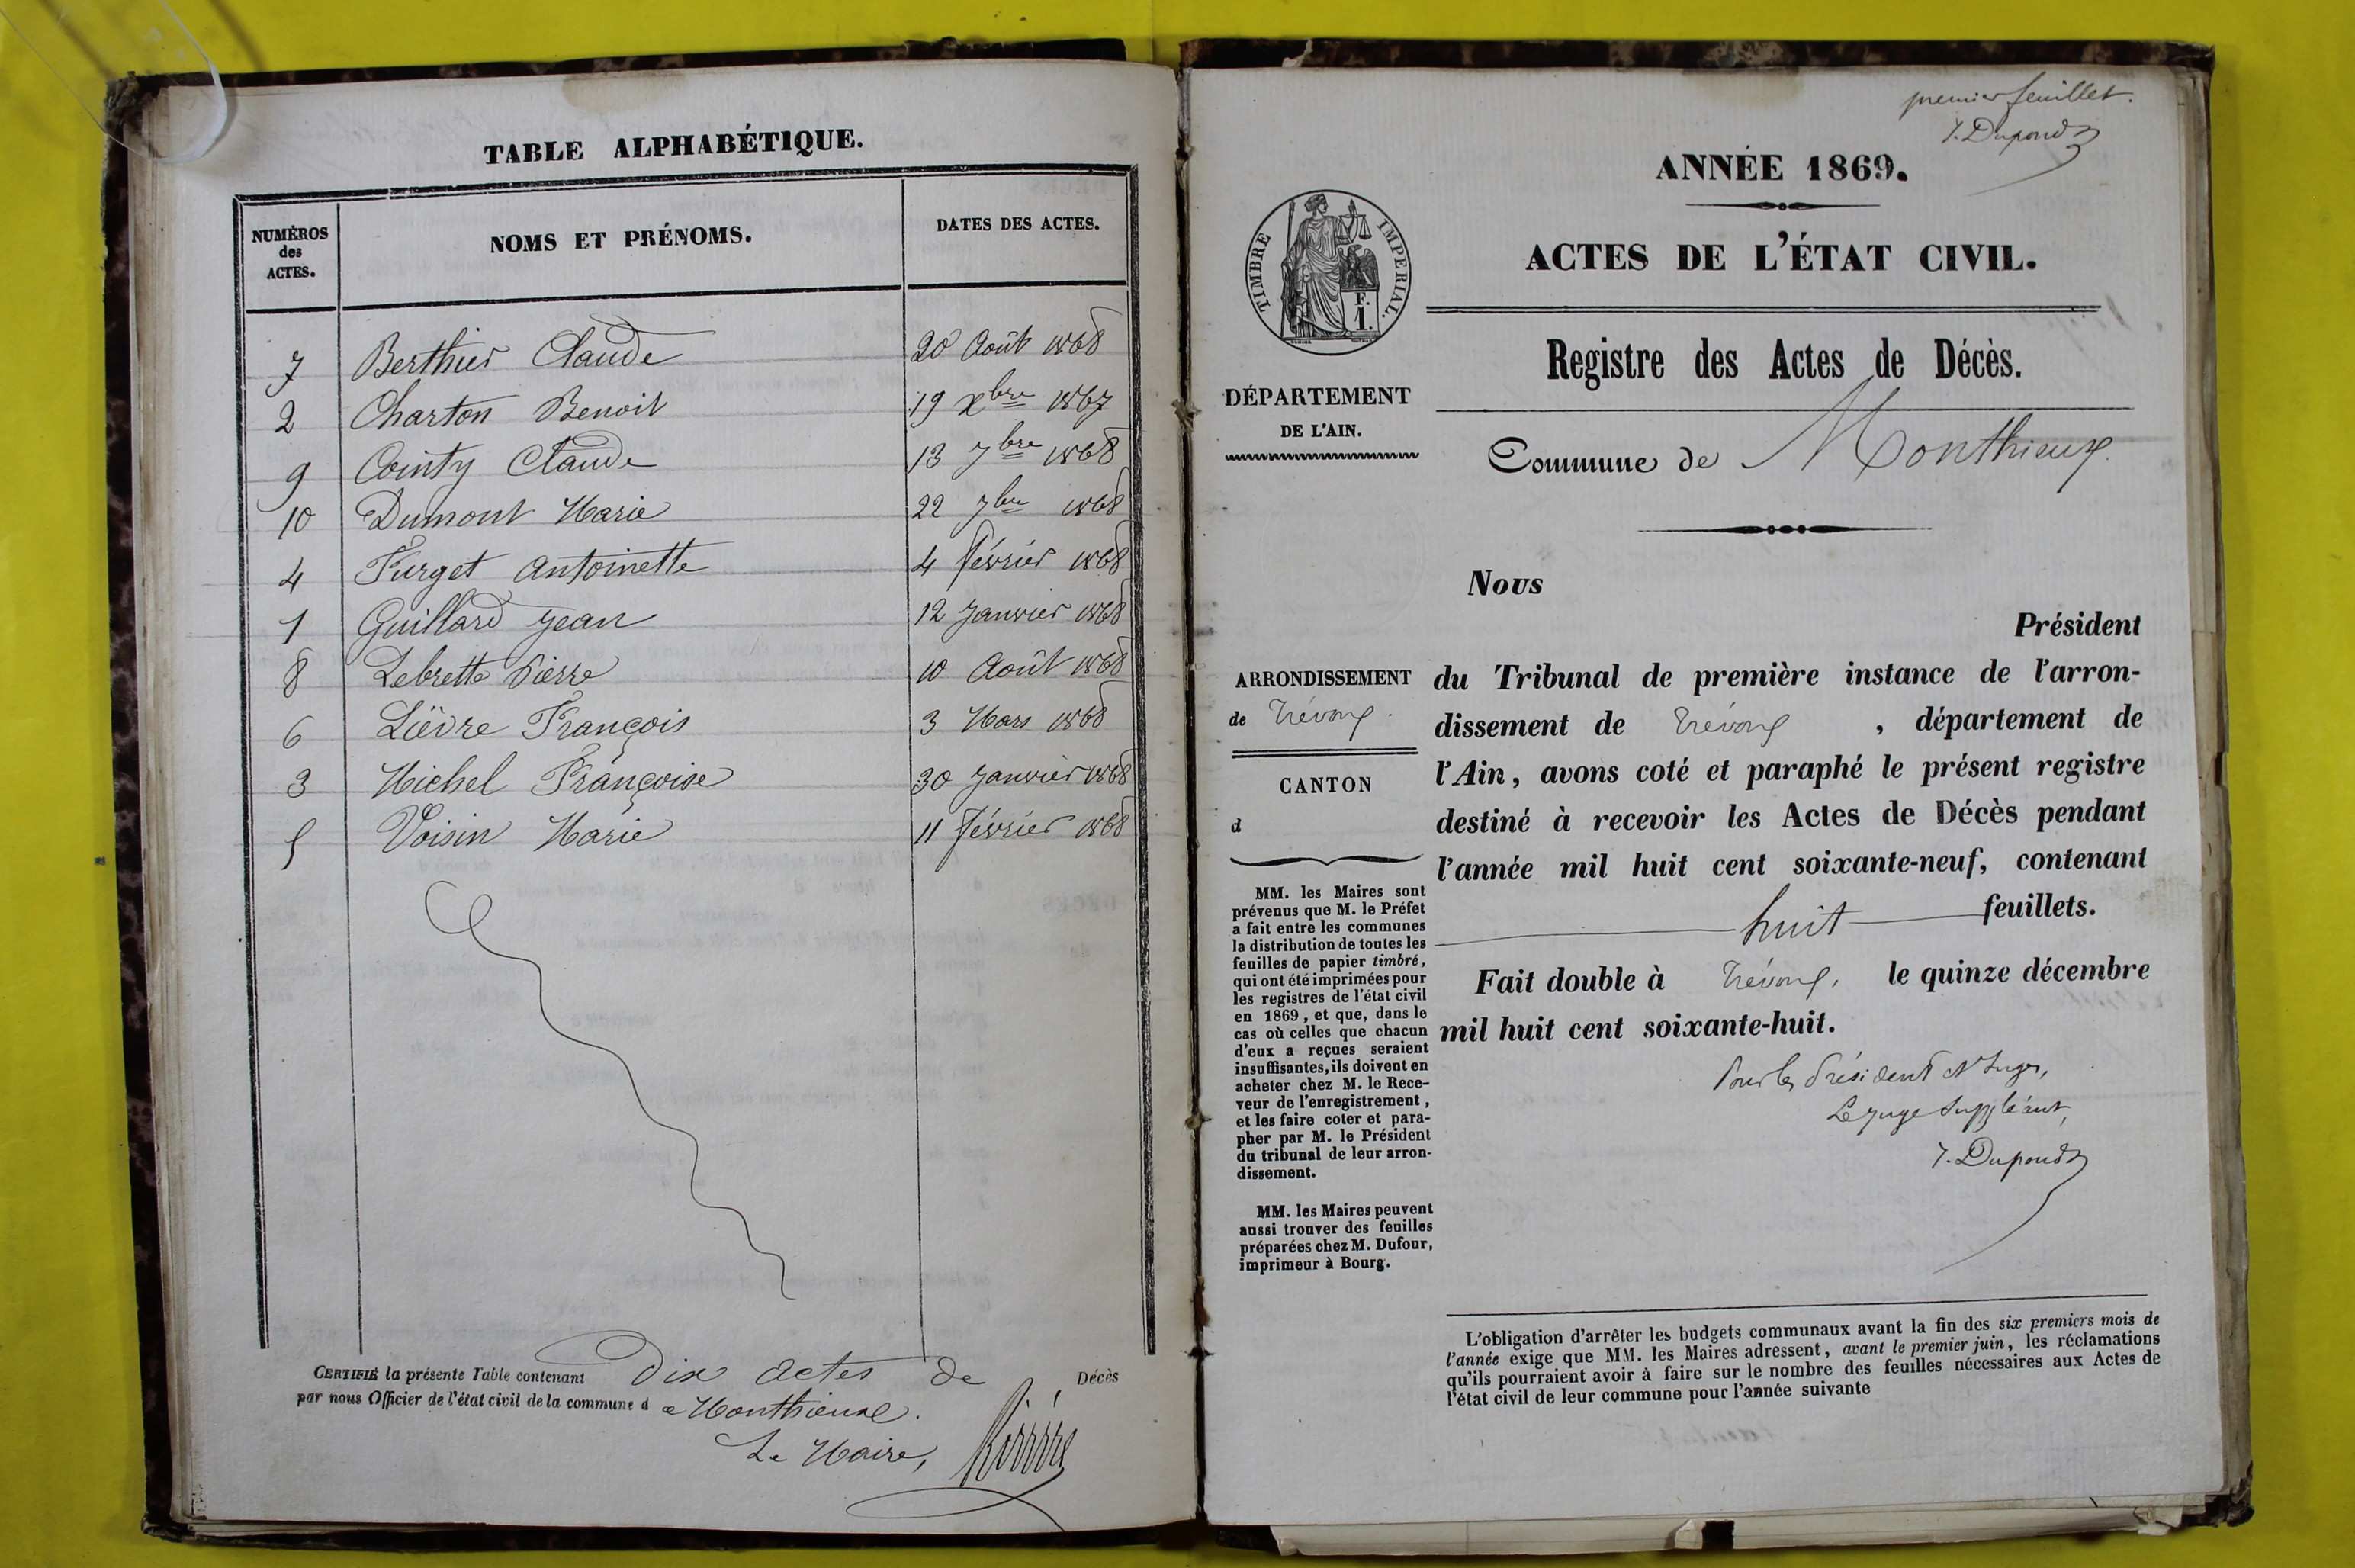 TABLE ALPHABÉTIQUE.
NUMÉROS des ACTES. NOMS ET PRÉNOMS. DATES DES ACTES.
7 Berthier Claude 20 Août 1868
2 Charton Benoit 19 Xbre 1867
9 Cointy Claude 13 7bre 1868
10 Dumont Marie 22 7bre 1868
4 Furget Antoinette 4 février 1868
1 Guillard Jean 12 Janvier 1868
8 Lebrette Pierre 10 Août 1868
6 Lièvre François 3 Mars 1868
3 Michel Françoise 30 Janvier 1868
5 Voisin Marie 11 février 1868
CERTIFIÉ la présente Table contenant Dix actes de Décès
par nous Officier de l'état civil de la commune de Monthieux.
Le Maire,
premier feuillet.
J. Dupond
ANNÉE 1869.
TIMBRE IMPERIAL.
F.
1.
ACTES DE L'ÉTAT CIVIL.
Registre des Actes de Décès.
DÉPARTEMENT
DE L'AIN.
Commune de Monthieux.
Nous
Président
du Tribunal de première instance de l'arron-
dissement de Trévoux, département de
l'Ain, avons coté et paraphé le présent registre
destiné à recevoir les Actes de Décès pendant
l'année mil huit cent soixante-neuf, contenant
huit feuillets.
Fait double à Trévoux, le quinze décembre
mil huit cent soixante-huit.
Pour les Président et Juges,
Le juge Suppléant,
J. Dupond
ARRONDISSEMENT
de Trévoux.
CANTON
d
MM. les Maires sont
prévenus que M. le Préfet
a fait entre les communes
la distribution de toutes les
feuilles de papier timbré,
qui ont été imprimées pour
les registres de l'état civil
en 1869, et que, dans le
cas où celles que chacun
d'eux a reçues seraient
insuffisantes, ils doivent en
acheter chez M. le Rece-
veur de l'enregistrement,
et les faire coter et para-
pher par M. le Président
du tribunal de leur arron-
dissement.
MM. les Maires peuvent
aussi trouver des feuilles
préparées chez M. Dufour,
imprimeur à Bourg.
L'obligation d'arrêter les budgets communaux avant la fin des six premiers mois de
l'année exige que MM. les Maires adressent, avant le premier juin, les réclamations
qu'ils pourraient avoir à faire sur le nombre des feuilles nécessaires aux Actes de
l'état civil de leur commune pour l'année suivante